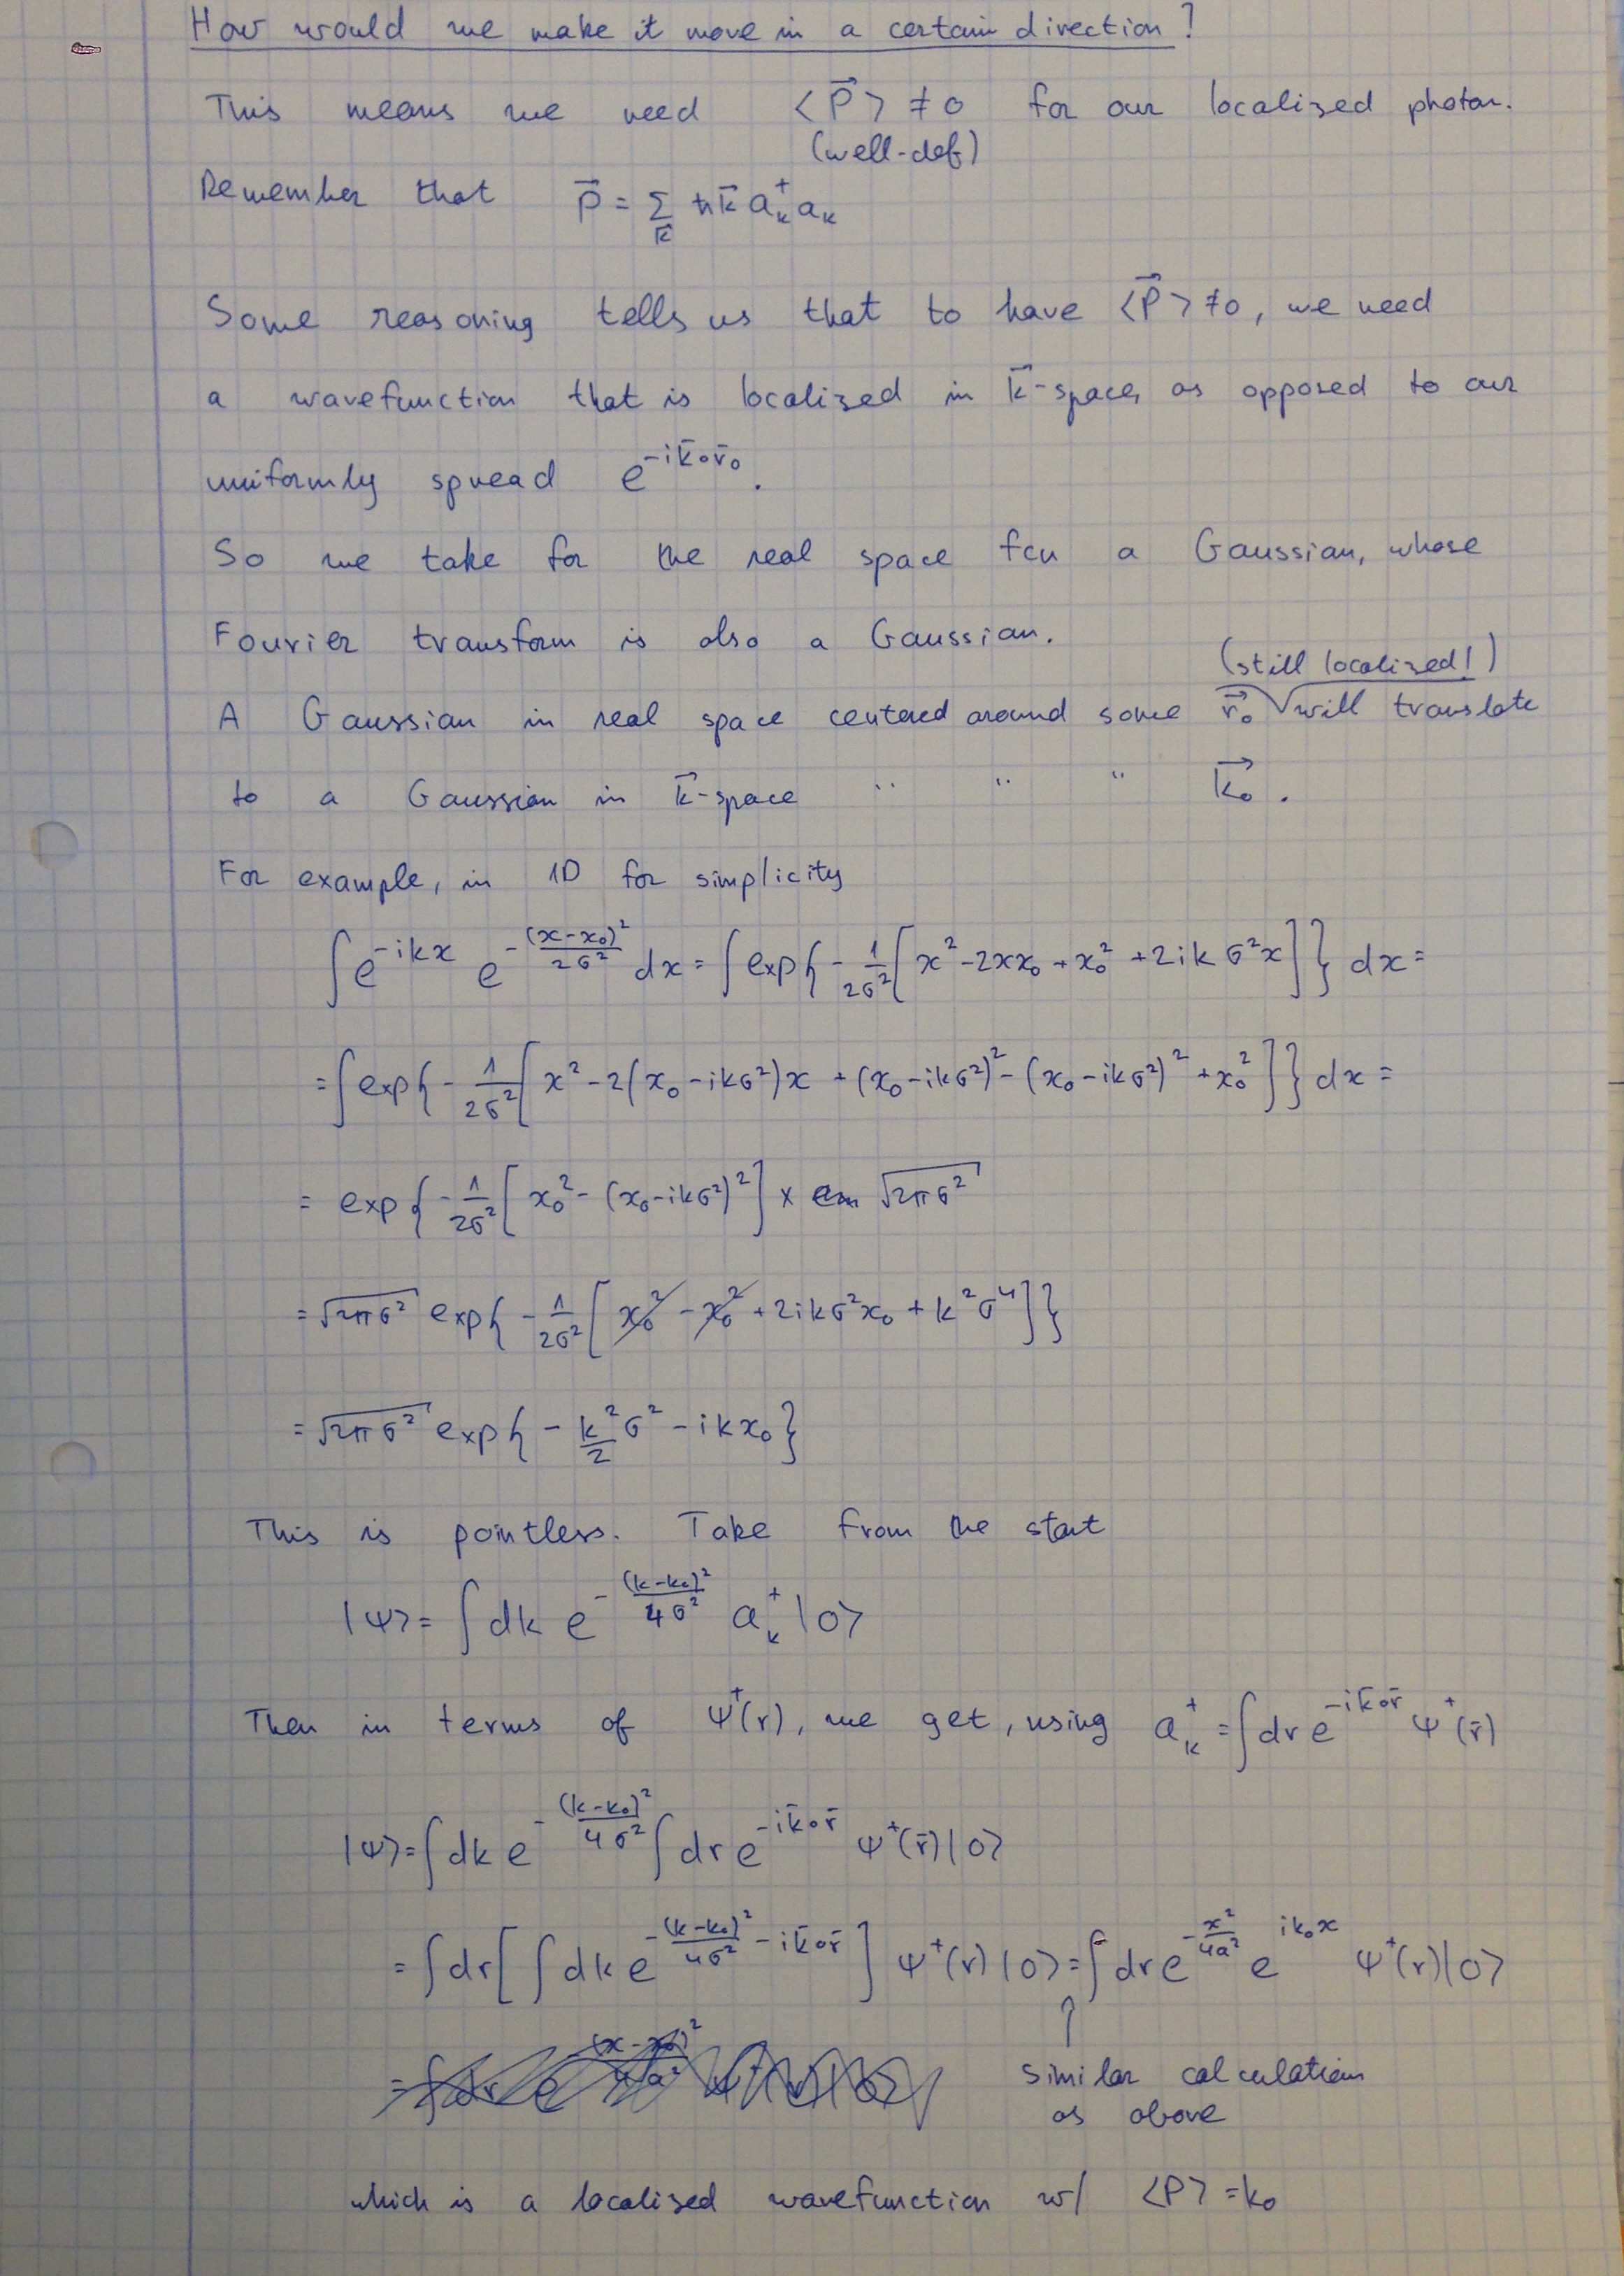 How would we make it move in a certain direction?
This means we need ⟨P⃗⟩ ≠ 0 for our localized photon.
(well-def)
Remember that P⃗ = Σ_k⃗ ħk⃗ a_k^+ a_k
Some reasoning tells us that to have ⟨P⃗⟩ ≠ 0, we need
a wavefunction that is localized in k⃗-space, as opposed to our
uniformly spread e^{-ik̄∘r̄₀}.
So we take for the real space fcn a Gaussian, whose
Fourier transform is also a Gaussian.
(still localized!)
A Gaussian in real space centered around some r⃗₀ will translate
to a Gaussian in k⃗-space " " " k⃗₀.
For example, in 1D for simplicity
∫ e^{-ikx} e^{-(x-x₀)²/2σ²} dx = ∫ exp{-1/2σ² [x² - 2xx₀ + x₀² + 2ikσ²x]} dx =
= ∫ exp{-1/2σ² [x² - 2(x₀ - ikσ²)x + (x₀ - ikσ²)² - (x₀ - ikσ²)² + x₀²]} dx =
= exp{-1/2σ² [x₀² - (x₀ - ikσ²)²] × √2πσ²
= √2πσ² exp{-1/2σ² [x₀² - x₀² + 2ikσ²x₀ + k²σ⁴]}
= √2πσ² exp{-k²/2 σ² - ikx₀}
This is pointless. Take from the start
|ψ⟩ = ∫ dk e^{-(k-k₀)²/4σ²} a_k^+ |0⟩
Then in terms of ψ^+(r), we get, using a_k^+ = ∫ dr e^{-ik̄∘r̄} ψ^+(r̄)
|ψ⟩ = ∫ dk e^{-(k-k₀)²/4σ²} ∫ dr e^{-ik̄∘r̄} ψ^+(r̄)|0⟩
= ∫ dr [∫ dk e^{-(k-k₀)²/4σ² - ik̄∘r̄}] ψ^+(r)|0⟩ = ∫ dr e^{-x²/4a²} e^{ik₀x} ψ^+(r)|0⟩
similar calculation
as above
which is a localized wavefunction w/ ⟨P⟩ = k₀